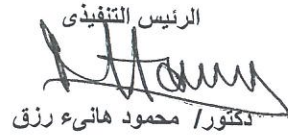 الرئيس التنفيذى
دكتور/ محمود هانىء رزق